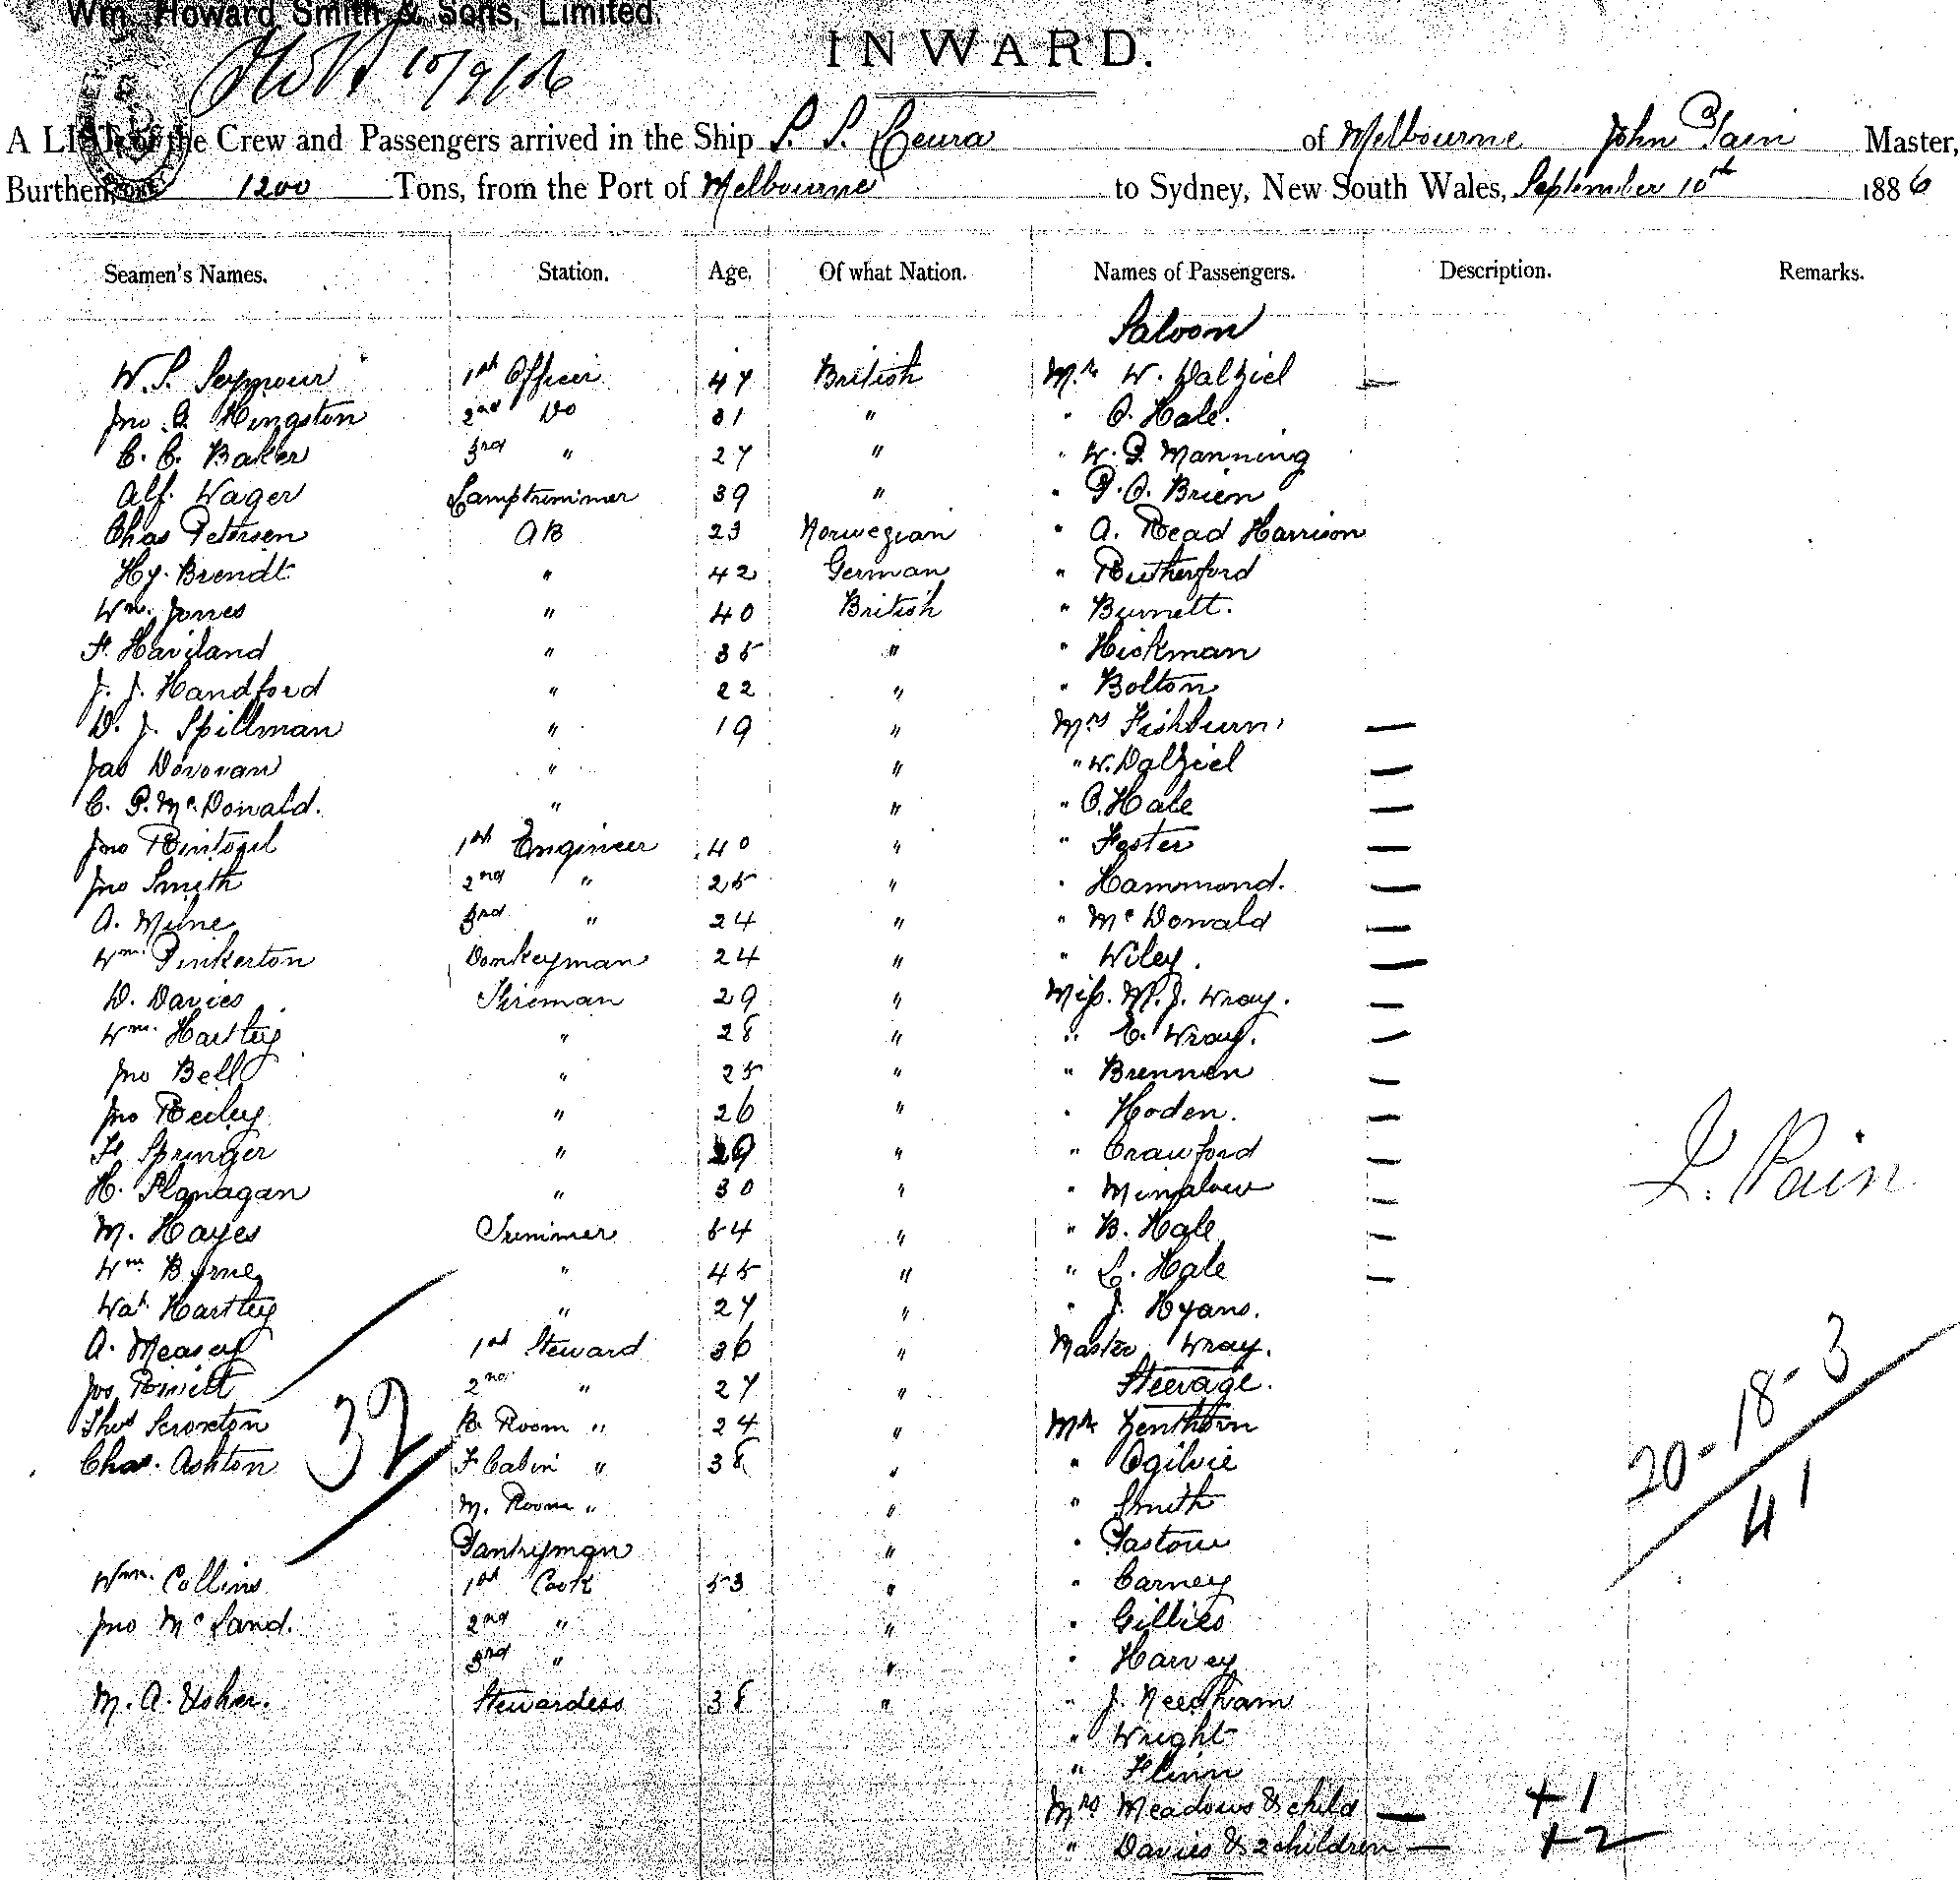 Wm. Howard Smith & Sons, Limited.
10/9/86
INWARD.
A LIST of the Crew and Passengers arrived in the Ship S. S. Leura of Melbourne John Pain Master,
Burthen 1200 Tons, from the Port of Melbourne to Sydney, New South Wales, September 10th 1886
Seamen's Names. Station. Age. Of what Nation. Names of Passengers. Description. Remarks.
Saloon
W. S. Seymour 1st Officer 47 British Mr. W. Dalziel —
Jno. G. Kingston 2nd Do 31 " " O. Hale.
C. C. Baker 3rd " 27 " " W. P. Manning
Alf. Wager Lamptrimmer 39 " " P. O. Brien
Chas Petersen AB 23 Norwegian " A. Read Harrison
Hy. Brendt " 42 German " Rutherford
Wm. Jones " 40 British " Burnett.
F. Haviland " 35 " " Hickman
J. J. Handford " 22 " " Bolton
D. J. Spillman " 19 " Mrs Fishburn —
Jas Donovan " " " W. Dalziel —
C. P. McDonald. " " " O. Hale —
Jno Rintoul 1st Engineer 40 " " Foster —
Jno Smith 2nd " 25 " " Hammond. —
A. Milne 3rd " 24 " " McDonald —
Wm. Pinkerton Donkeyman 24 " " Wiley. —
D. Davies Fireman 29 " Miss. M. J. Wray. —
Wm. Hartley " 28 " " E. Wray. —
Jno Bell " 25 " " Brennen —
Jno Reiley " 26 " " Hoden. —
F. Springer " 29 " " Crawford —
H. Flanagan " 30 " " —
M. Hayes Trimmer 54 " " B. Hale —
Wm Byrne " 45 " " L. Hale —
Wat. Hartley " 27 " " J. Hyans.
A. Measey 1st Steward 36 " Master Wray.
Jos 2nd " 27 " Steerage.
Thos Scroxton B. Room " 24 " Mr Zenthorn
Chas. Ashton F Cabin " 38 " " Ogilvie
32
M. Room " " " Smith
Pantryman " "
Wm. Collins 1st Cook 53 " " Carney
Jno McLand. 2nd " " " Gillies
3rd " " " Harvey
M. A. Usher. Stewardess 38 " " J. Needham
" Wright
" Flinn
Mrs Meadows & child — +1
" Davies & 2 children — +2
J. Pain
20-18-3
41